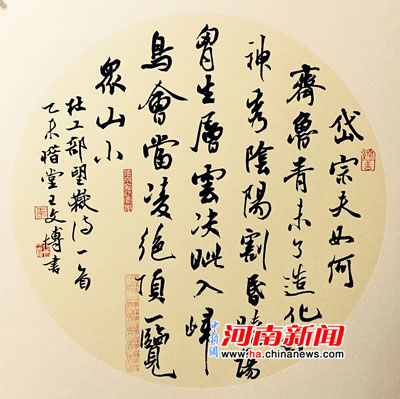 岱宗夫如何
齊魯青未了造化鍾
神秀陰陽割昏曉蕩
胷生層雲决眦入歸
鳥會當凌绝頂一覽
眾山小
杜工部望嶽诗一首
乙未堂王文書
中新網 河南新闻
www.ha.chinanews.com